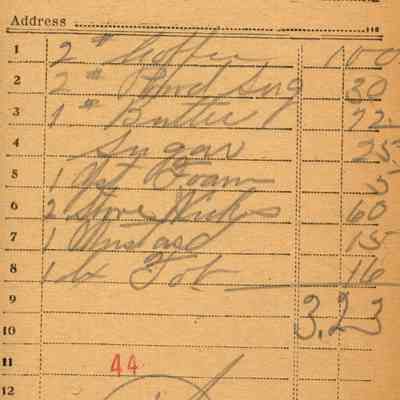 Address
1 2 # Coffee 1 00
2 2 # Powd Sug 30
3 1 # Butter 72
4 Sugar 25
5 1 Yst Foam 5
6 2 Stove Wicks 60
7 1 Mustard 15
8 1 Tob 16
9 3.23
10
11 44
12